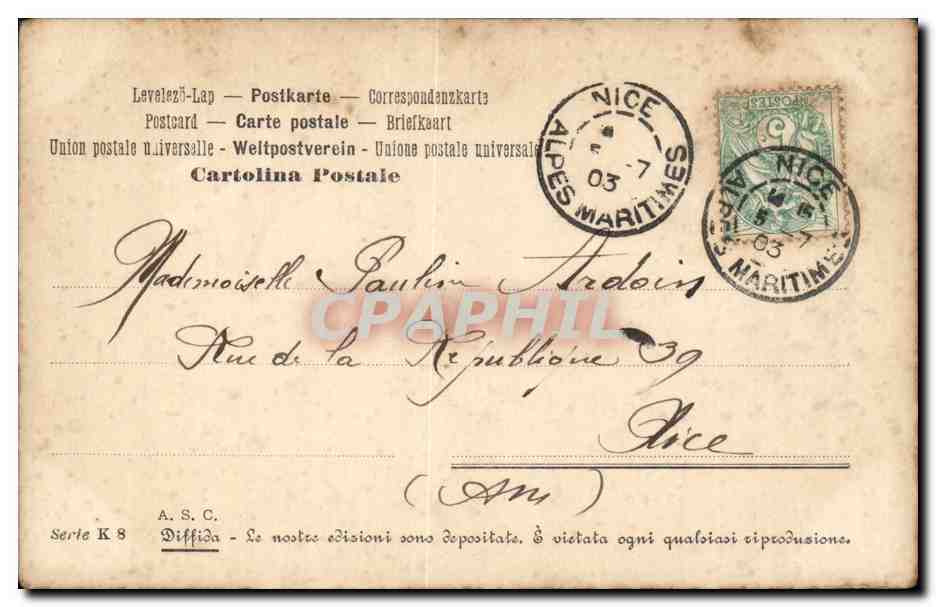 Levelező-Lap — Postkarte — Correspondenzkarte
Postcard — Carte postale — Briefkaart
Union postale universelle - Weltpostverein - Unione postale universale
Cartolina Postale
NICE
7
03
ALPES MARITIMES
POSTES
NICE
5 15
7
03
ALPES MARITIMES
Mademoiselle Paulin Ardoin
CPAPHIL
Rue de la République 39
Nice
(Am)
A. S. C.
Serie K 8 Diffida - Le nostre edizioni sono depositate. È vietata ogni qualsiasi riproduzione.